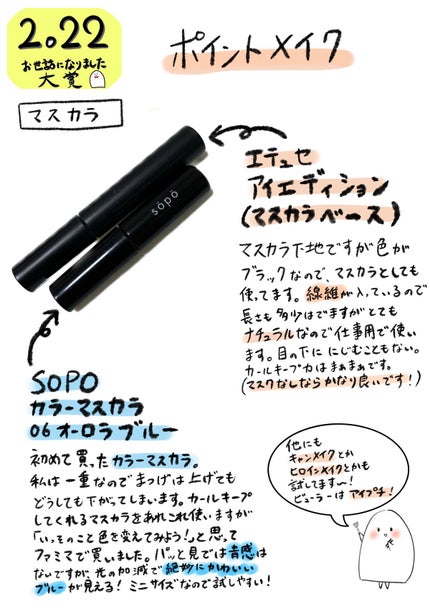 2.022
お世話になりました
大賞
ポイントメイク
マスカラ
sopo
エテュセ
アイエディション
(マスカラベース)
マスカラ下地ですが色が
ブラックなので、マスカラとしても
使ってます。繊維が入っているので
長さも多少はでますがとても
ナチュラルなので仕事用で使い
ます。目の下ににじむこともない。
カールキープ力はまぁまぁです。
(マスクなしならかなり良いです!)
SOPO
カラーマスカラ
06 オーロラブルー
初めて買ったカラーマスカラ。
私は一重なのでまつげは上げても
どうしても下がってしまいます。カールキープ
してくれるマスカラをあれこれ使いますが
「いっそのこと色を変えてみよう!」と思って
ファミマで買いました。パッと見では青感は
ないですが、光の加減で絶妙にかわいい
ブルーが見える! ミニサイズなので試しやすい!
他にも
キャンメイクとか
ヒロインメイクとかも
試してます〜!
ビューラーはアイプチ!